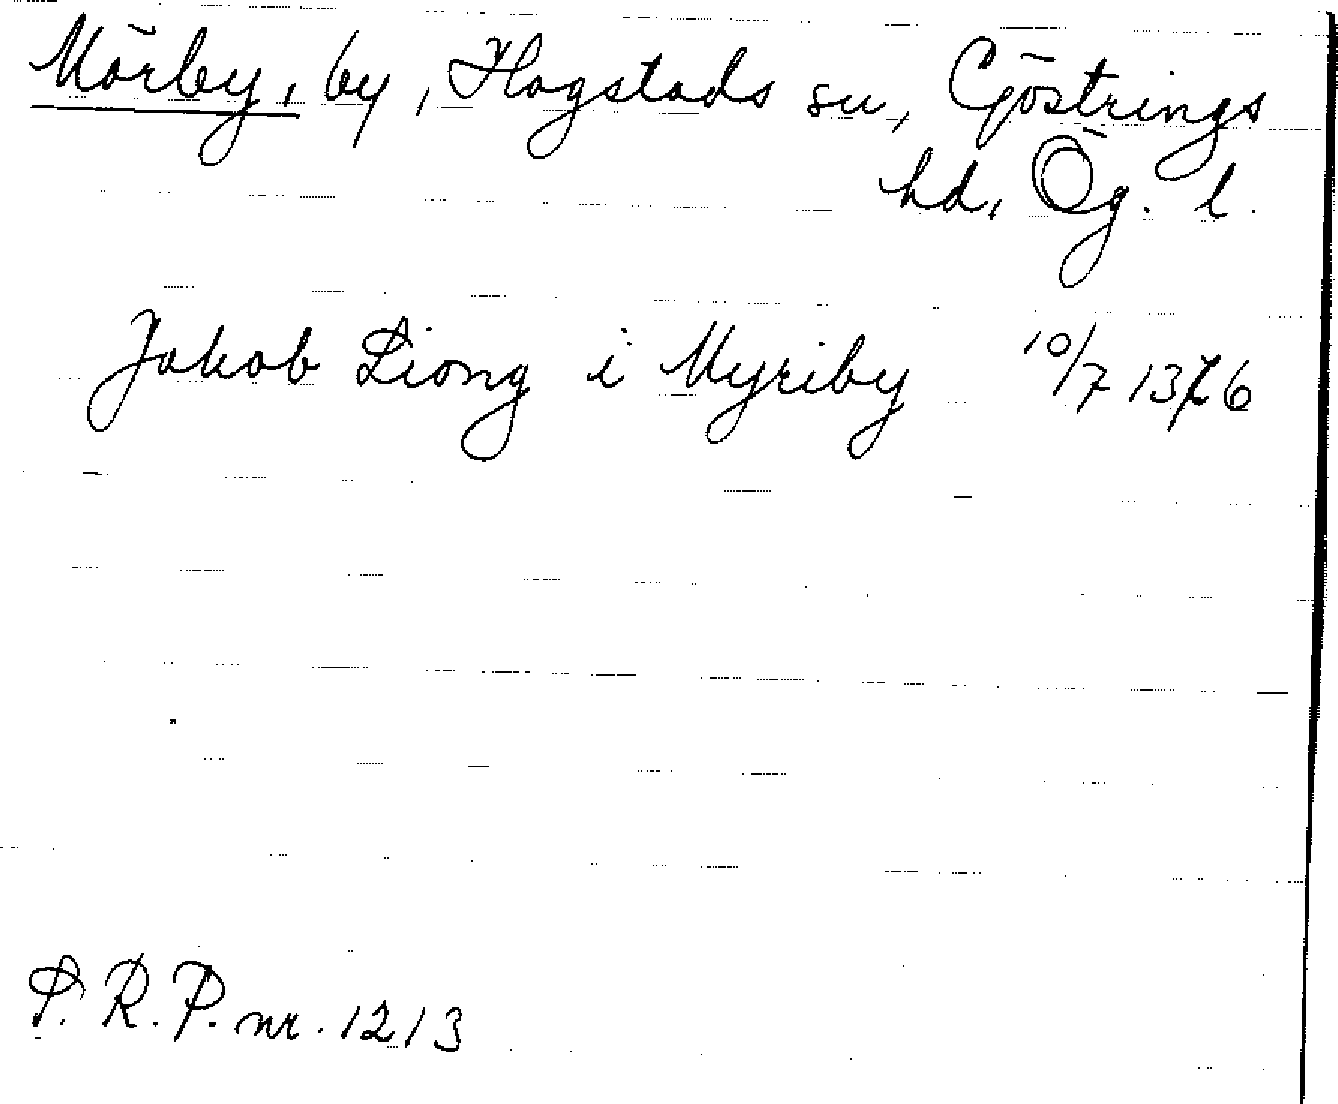 Mörby, by, Hogstads sn, Göstrings
hd, Ög. l.
Jakob Diong i Myriby 10/7 1376
S. R. P. nr. 1213